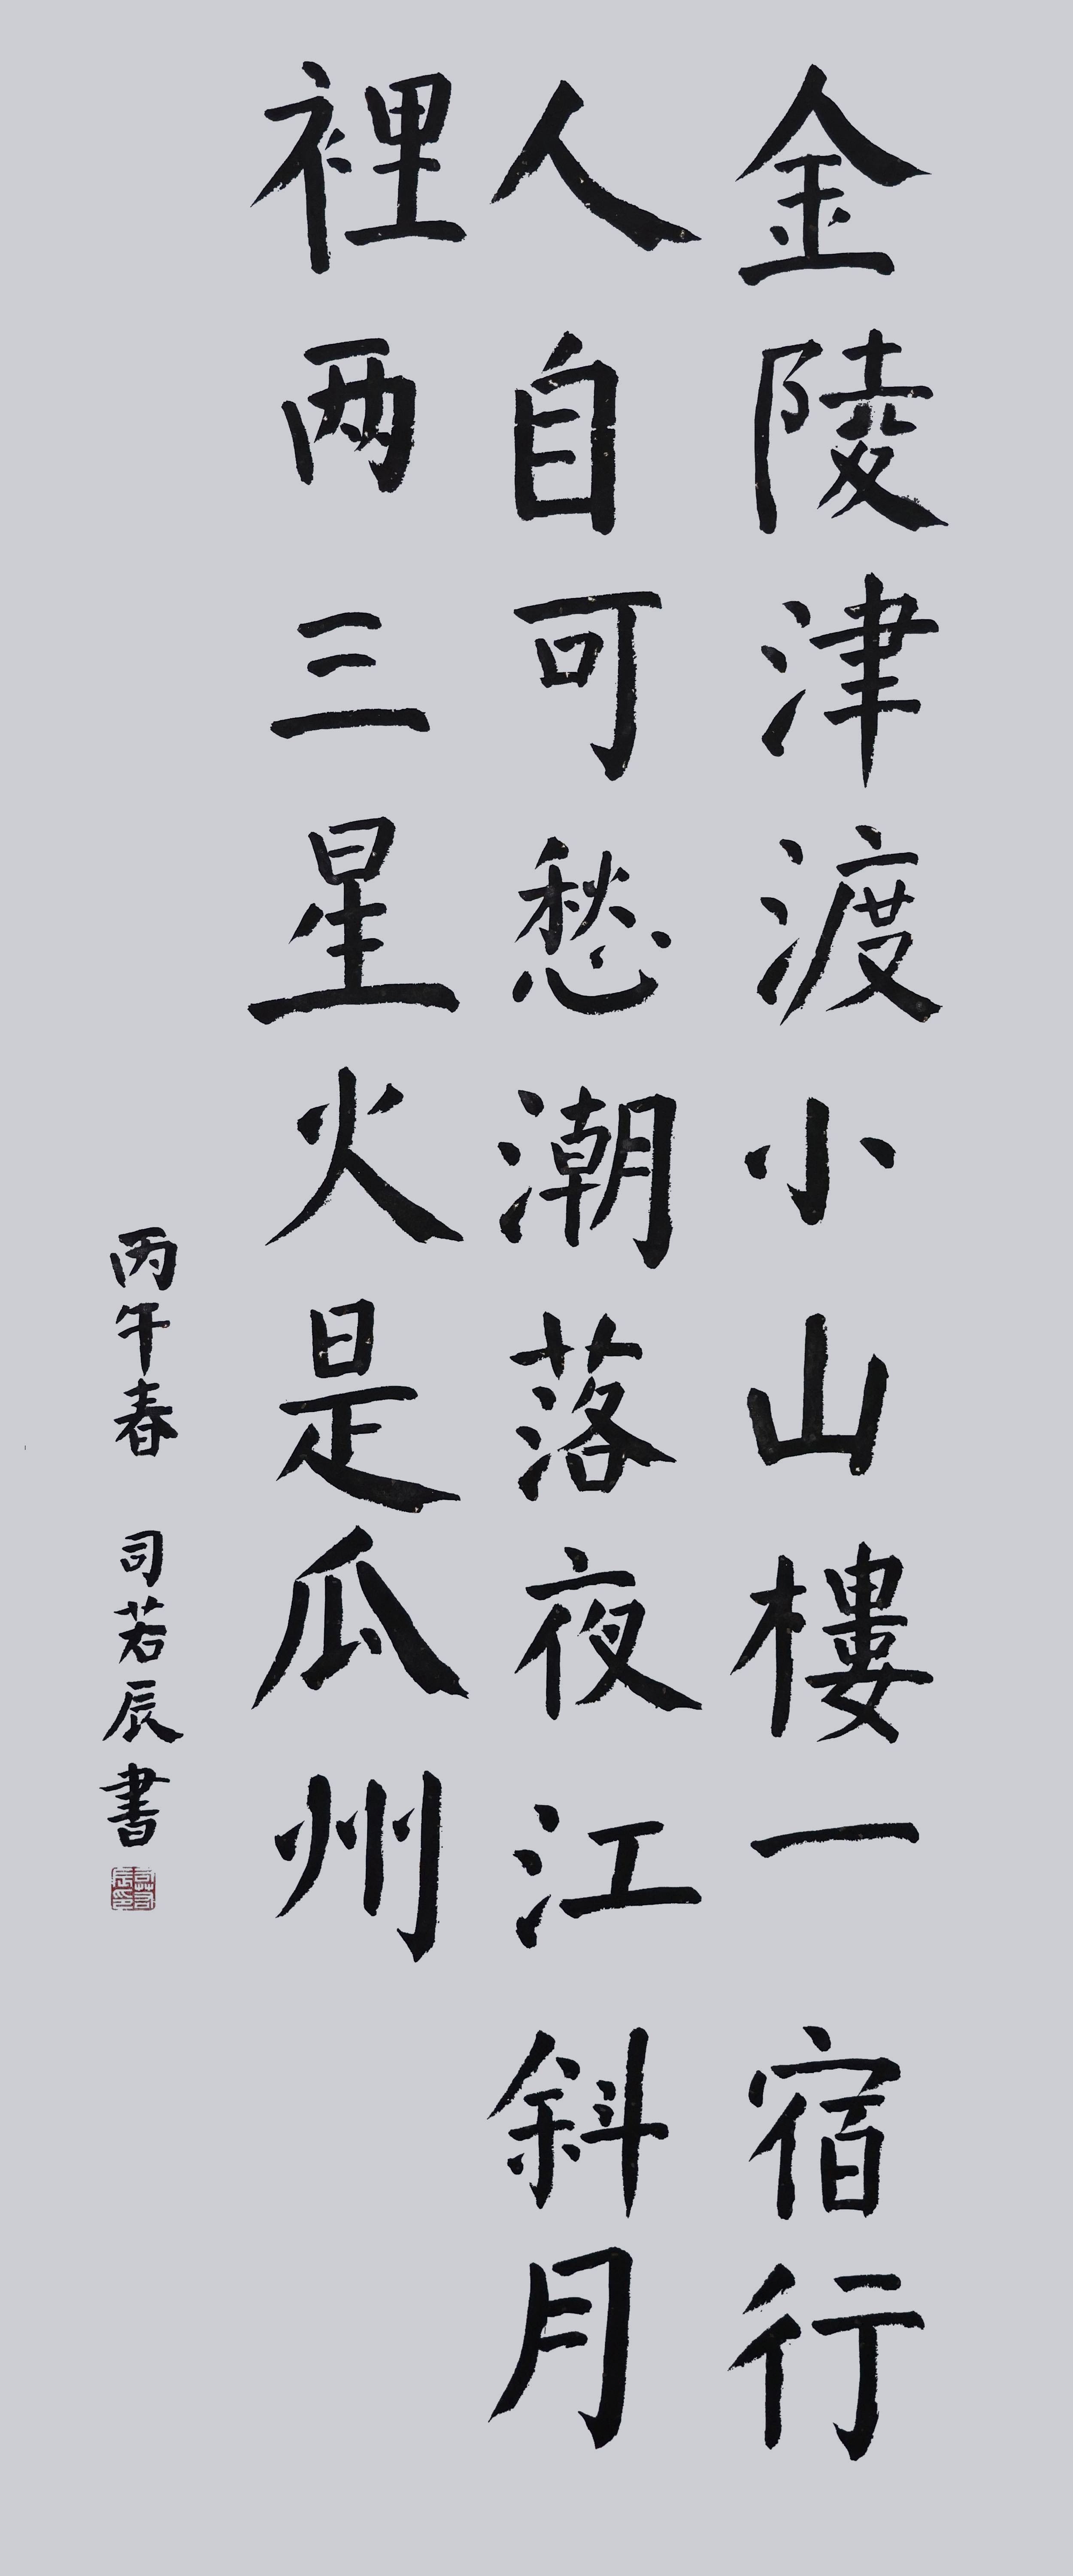 金陵津渡小山樓一宿行
人自可愁潮落夜江斜月
裡两三星火是瓜州
丙午春 司若辰書